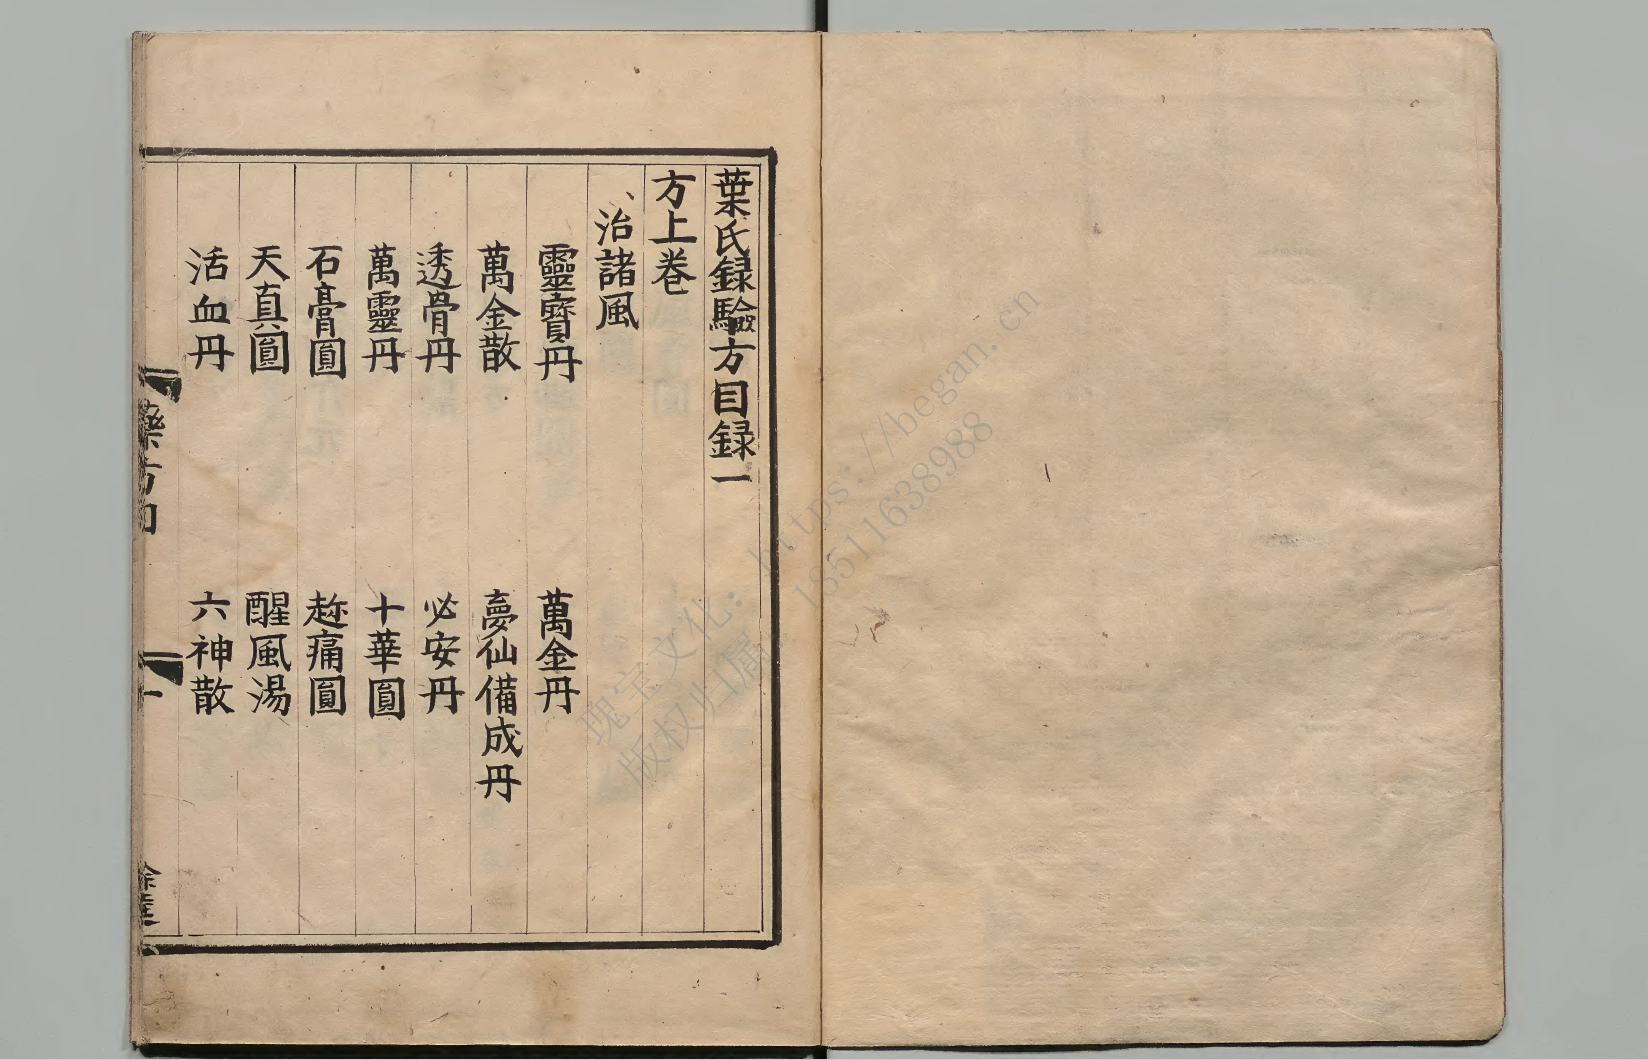 葉氏録驗方目録一
方上卷
治諸風
靈寳丹　萬金丹
萬金散　夢仙備成丹
透骨丹　必安丹
萬靈丹　十華圓
石膏圓　趂痛圓
天真圓　醒風湯
活血丹　六神散
藥方
一
瑰宝文化：https://began.cn
版权归属 18511638988